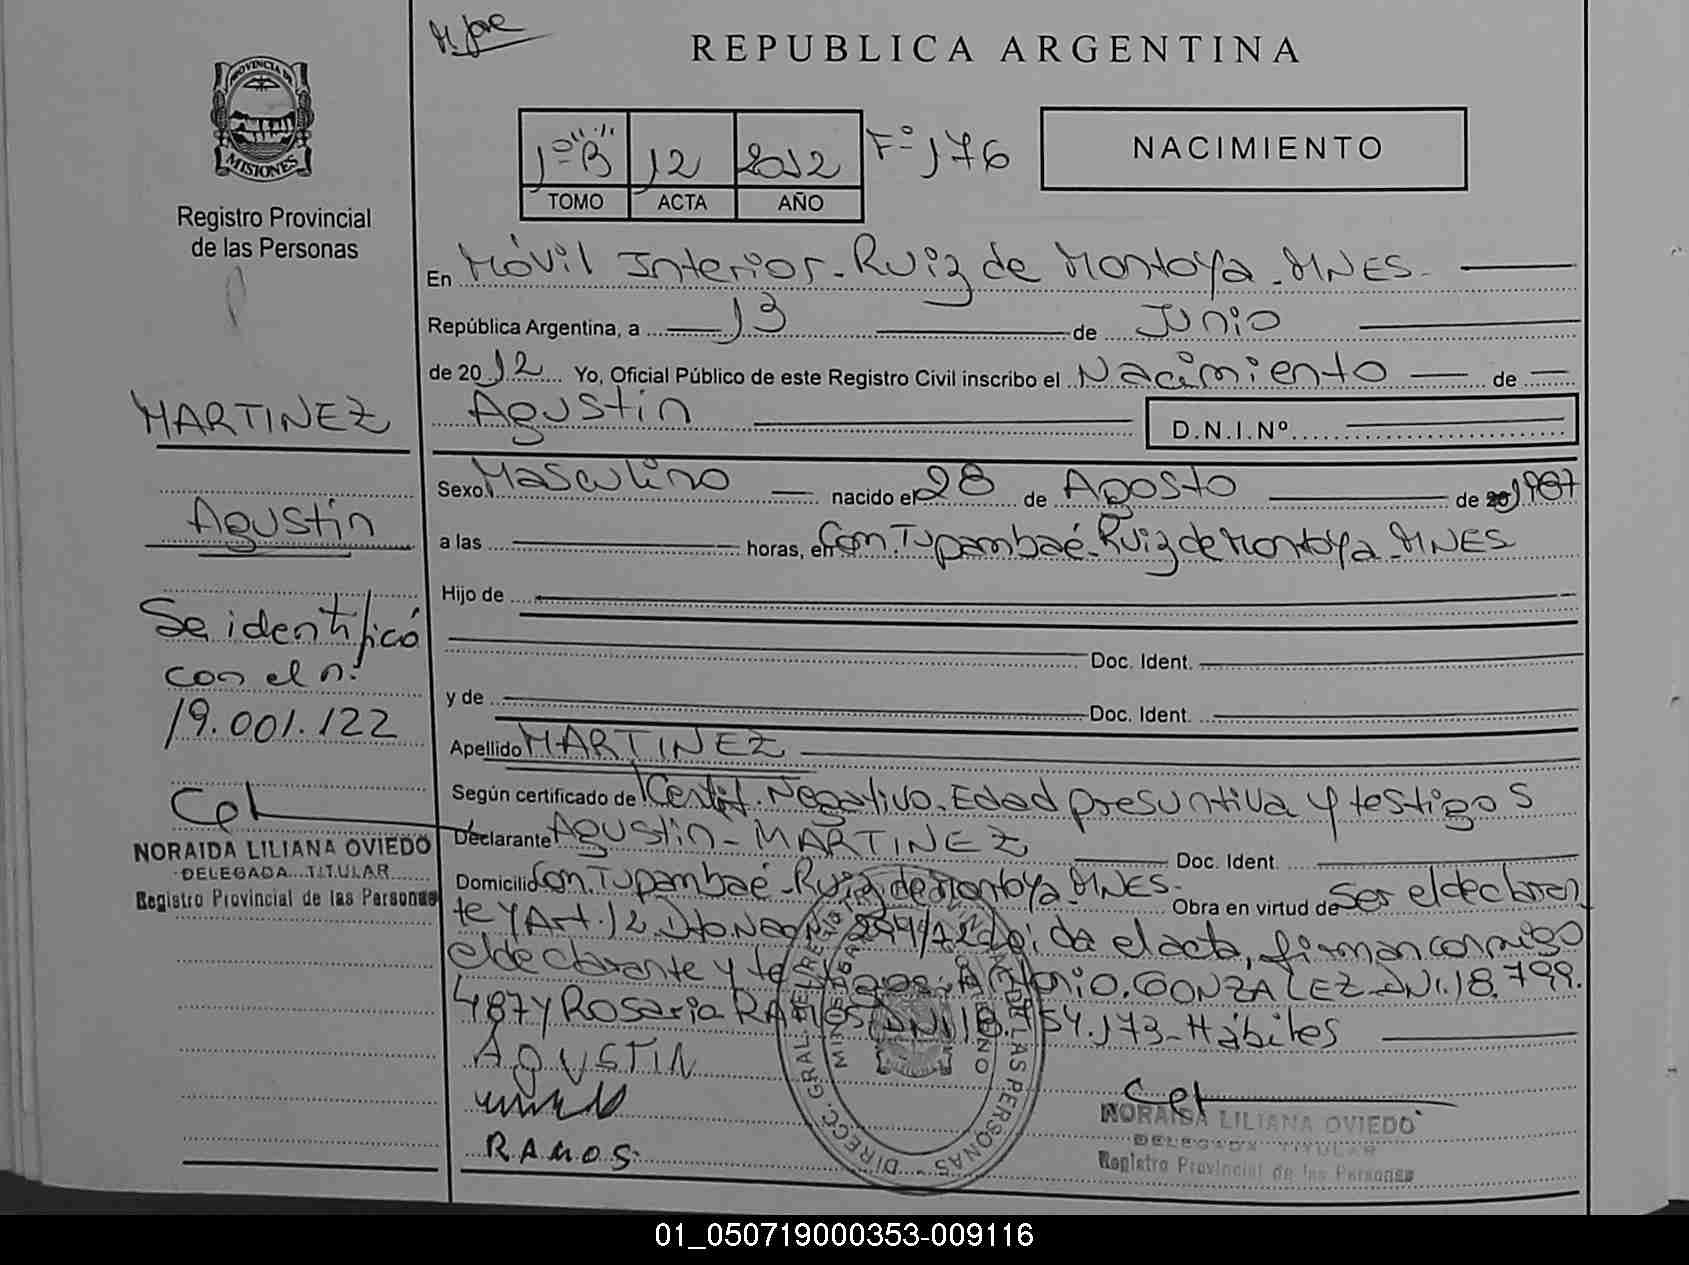 REPUBLICA ARGENTINA
PROVINCIA DE
MISIONES
Registro Provincial
de las Personas
1º "B" 12 2012 Fº 176
TOMO ACTA AÑO
NACIMIENTO
En Móvil Interior - Ruiz de Montoya - MNES -
República Argentina, a 13 de Junio
de 2012 Yo, Oficial Público de este Registro Civil inscribo el Nacimiento de
Agustin D.N.I.Nº
Sexo Masculino nacido el 28 de Agosto de 20 1987
a las horas, en Com. Tupambaé - Ruiz de Montoya - MNES
Hijo de
Doc. Ident.
y de Doc. Ident.
Apellido MARTINEZ
Según certificado de Certif. Negativo. Edad presuntiva y testigos
Declarante Agustin - MARTINEZ Doc. Ident.
Domicilio Com. Tupambaé - Ruiz de Montoya - MNES - Obra en virtud de Ser el declaran
te y Art. 12 Dto Nac Nº 299/12 Leida el acta, firman conmigo
el declarante y testigos: Antonio. GONZALEZ - DNI. 18.799.
487 y Rosaria RAMOS DNI 18.754.173 - Hábiles
AGUSTIN
RAMOS
MARTINEZ
Agustin
Se identificó
con el n:
19.001.122
NORAIDA LILIANA OVIEDO
DELEGADA TITULAR
Registro Provincial de las Personas
NORAIDA LILIANA OVIEDO
DELEGADA TITULAR
Registro Provincial de las Personas
01_050719000353-009116